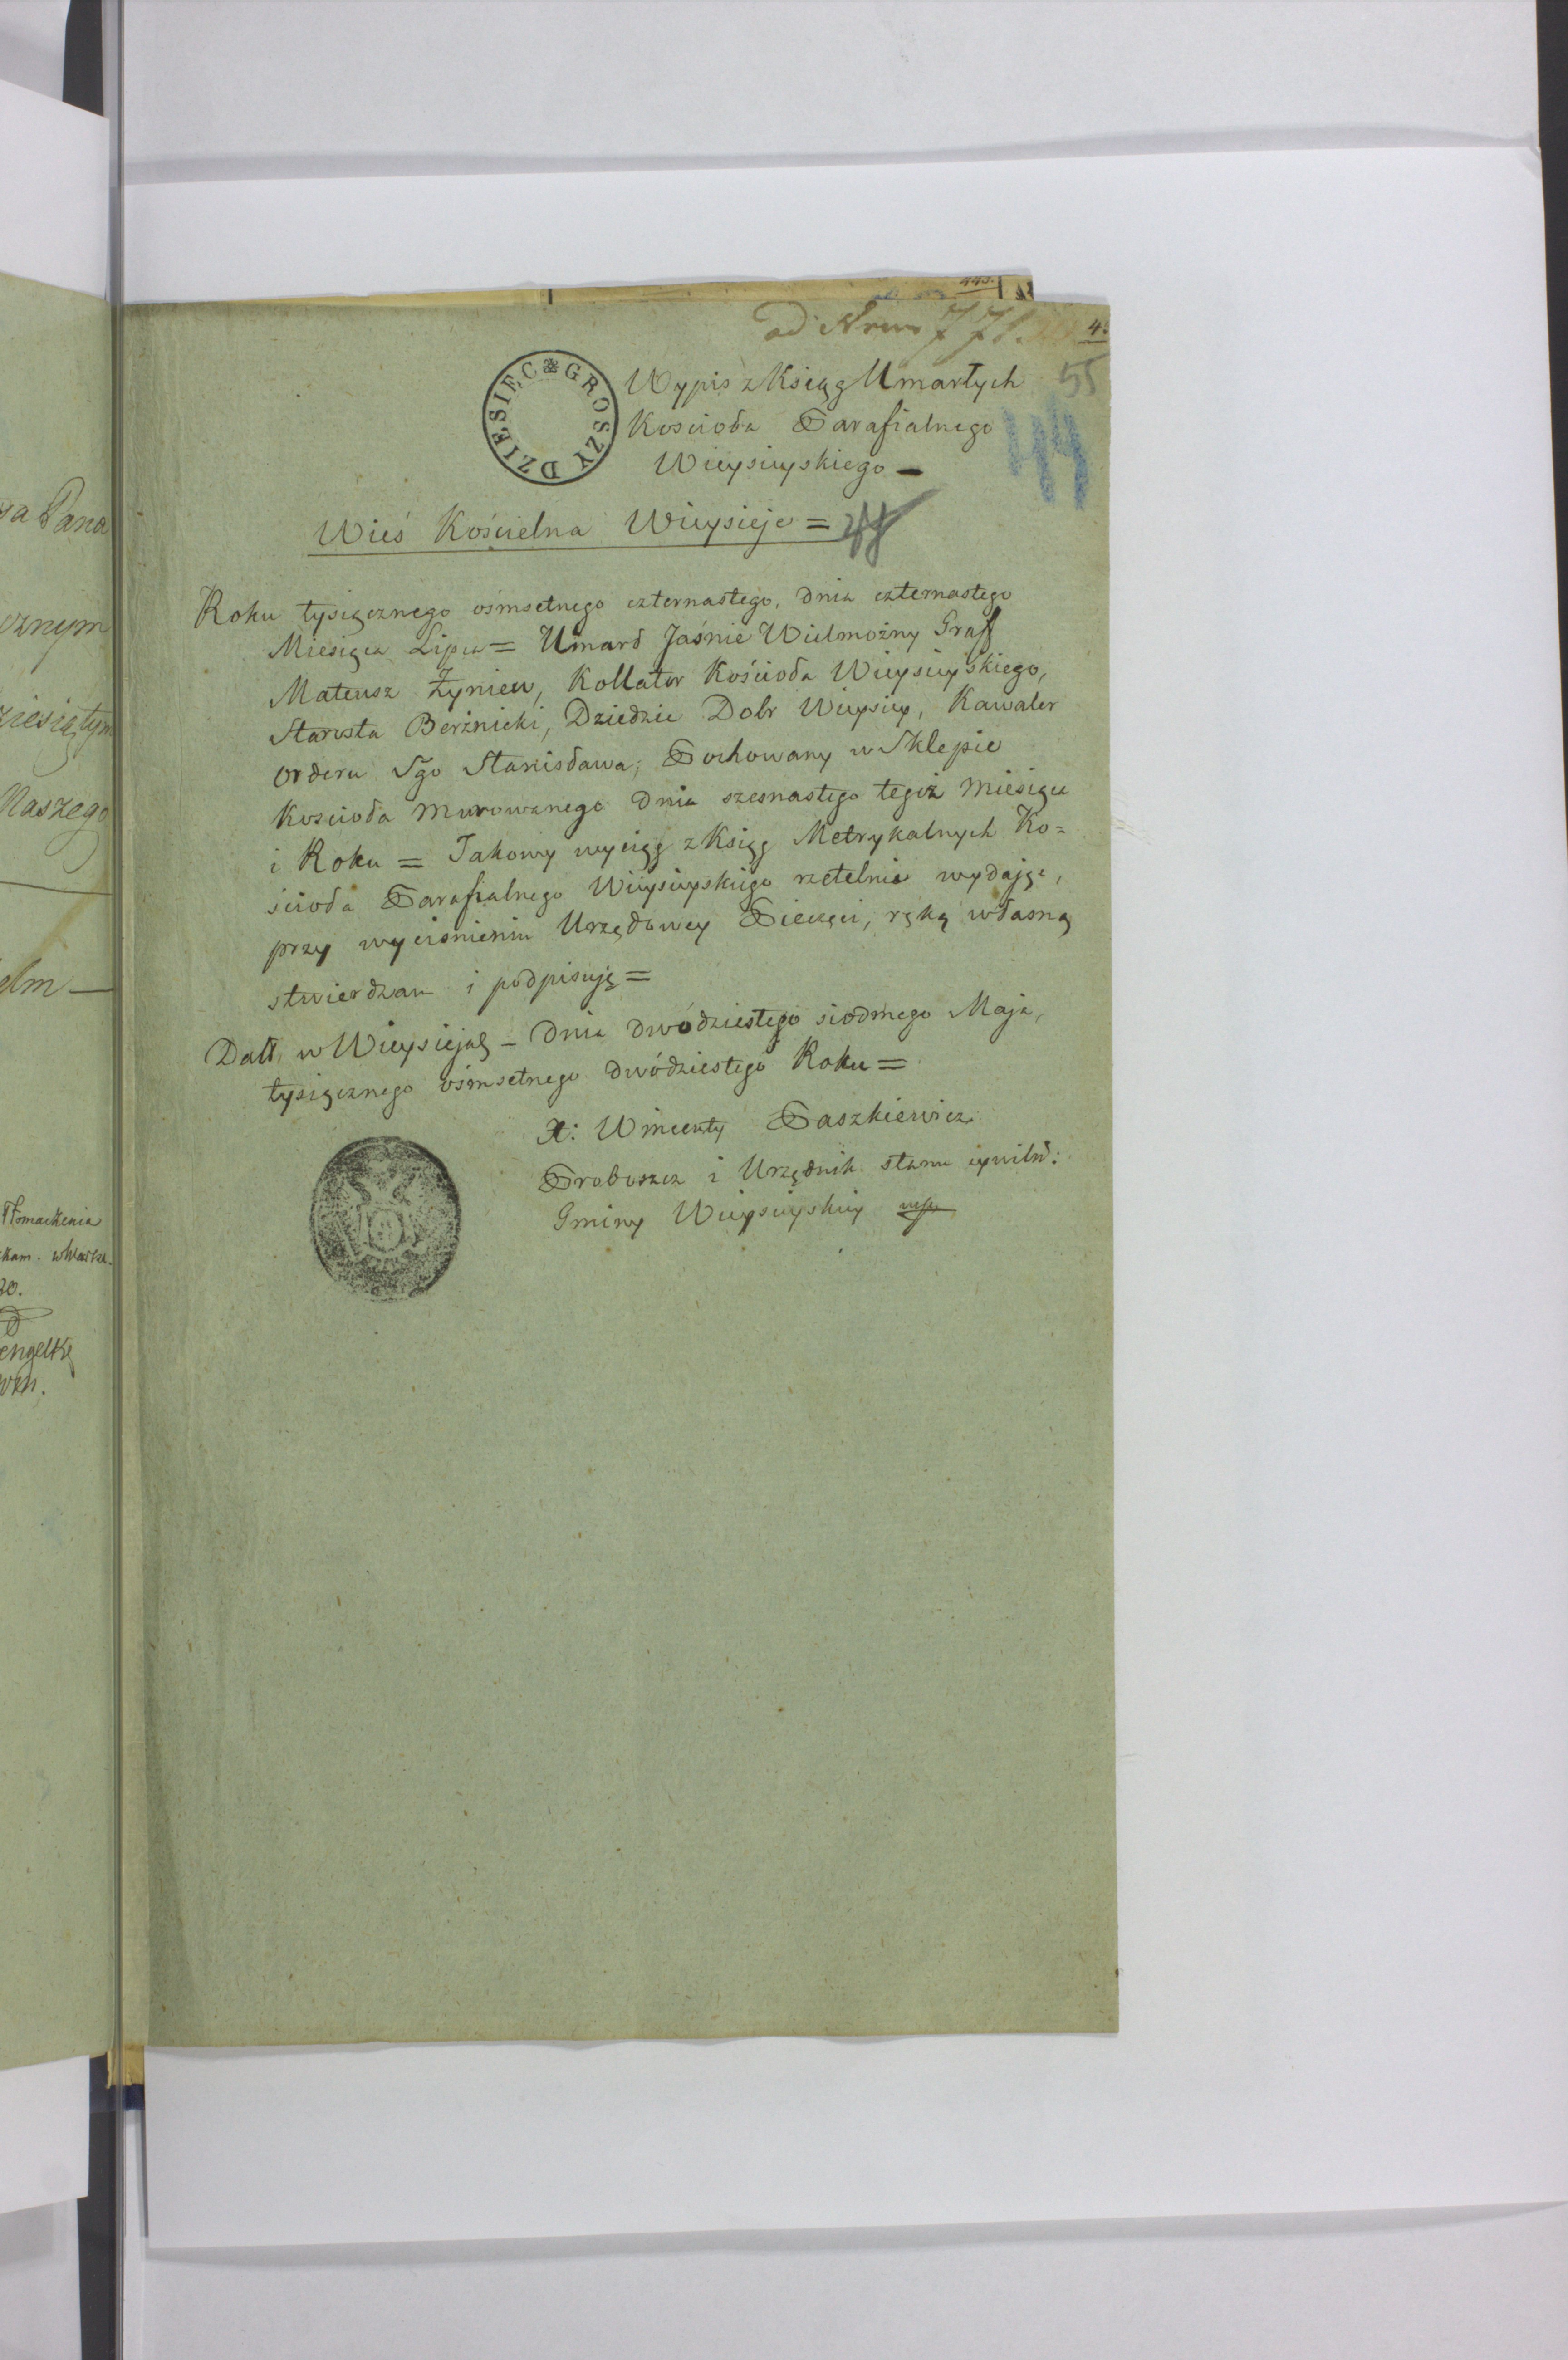 ad Nrum 771.
DZIESIĘC GROSZY
55
44
Wypis z Ksiąg Umarłych
Kościoła Parafialnego
Wieysieyskiego –
Wieś Kościelna Wieysieje =
Roku tysiącznego ośmsetnego czternastego, dnia czternastego
Miesiąca Lipca = Umarł Jaśnie Wielmożny Graff
Mateusz Żyniew, Kollator Kościoła Wieysieyskiego,
Starosta Berżnicki, Dziedzic Dobr Wieysiey, Kawaler
Orderu Sgo Stanisława; Pochowany w Sklepie
Kościoła Murowanego dnia szesnastego tegoż Miesiąca
i Roku = Takowy wyciąg z Ksiąg Metrykalnych Ko=
ścioła Parafialnego Wieysieyskiego rzetelnie wydając,
przy wyciśnieniu Urzędowey Pieczęci, ręką własną
stwierdzam i podpisuję =
Datt. w Wieysiejach – Dnia dwódziestego siodmego Maja,
tysiącznego ośmsetnego dwódziestego Roku =
X: Wincenty Paszkiewicz
Proboszcz i Urzędnik stanu cywiln:
Gminy Wieysieyskiey mp.